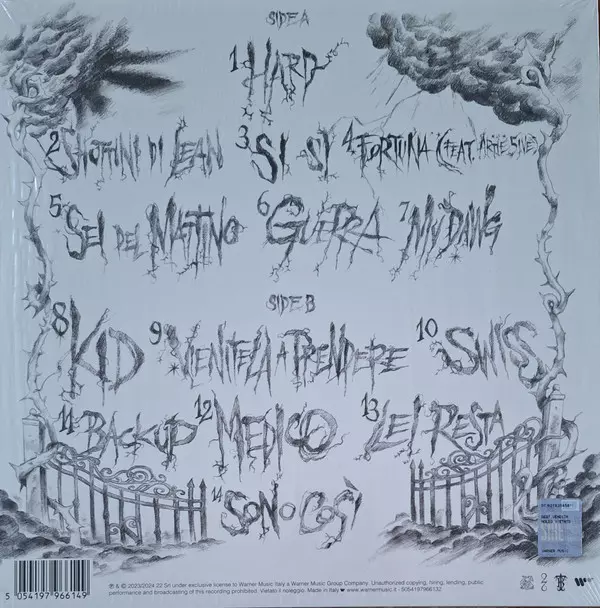 SIDE A
1 HARD
2 SHOTTINI DI LEAN 3 SI, SÌ 4 FORTUNA (FEAT. ARTIE 5IVE)
5 SEI DEL MATTINO 6 GUERRA 7 MY DAWG
SIDE B
8 KID 9 VIENITELA A PRENDERE 10 SWISS
11 BACKUP 12 MEDICO 13 LEI RESTA
14 SONO COSÌ
5 054197 966149
℗ & © 2023/2024 22 Srl under exclusive license to Warner Music Italy a Warner Music Group Company. Unauthorized copying, hiring, lending, public
performance and broadcasting of this recording prohibited. Vietato il noleggio. Made in Italy ♥ www.warnermusic.it - 5054197966132